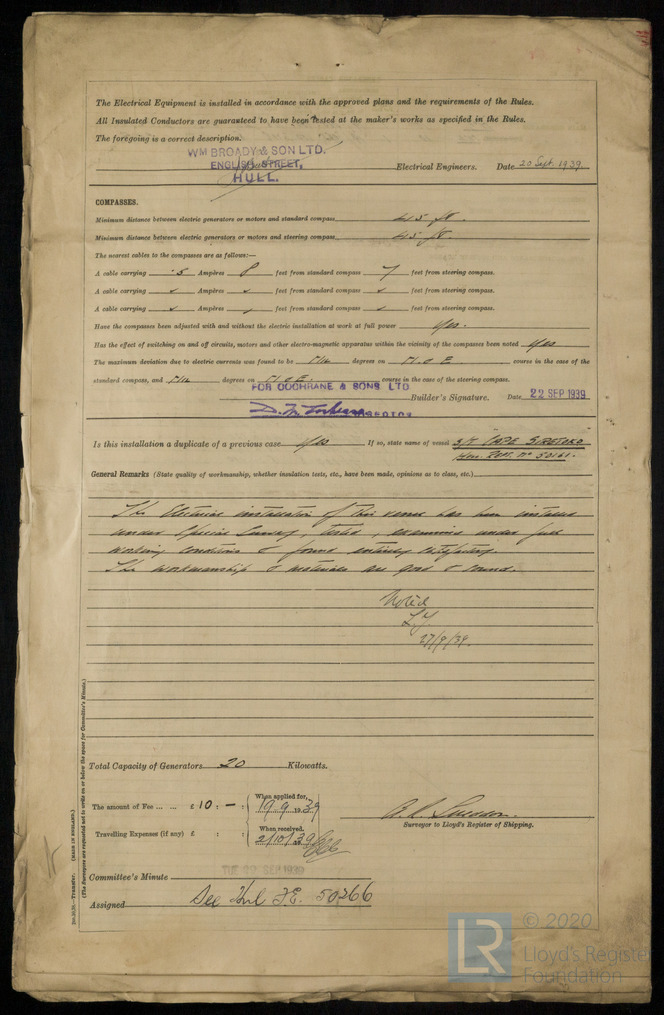 The Electrical Equipment is installed in accordance with the approved plans and the requirements of the Rules.
All Insulated Conductors are guaranteed to have been tested at the maker's works as specified in the Rules.
The foregoing is a correct description.
WM BROADY & SON LTD.
ENGLISH STREET,
HULL.
Electrical Engineers. Date 20 Sept. 1939.
COMPASSES.
Minimum distance between electric generators or motors and standard compass 45 ft.
Minimum distance between electric generators or motors and steering compass 45 ft.
The nearest cables to the compasses are as follows:—
A cable carrying .5 Ampères 8 feet from standard compass 7 feet from steering compass.
A cable carrying Ampères feet from standard compass feet from steering compass.
A cable carrying Ampères feet from standard compass feet from steering compass.
Have the compasses been adjusted with and without the electric installation at work at full power Yes.
Has the effect of switching on and off circuits, motors and other electro-magnetic apparatus within the vicinity of the compasses been noted Yes
The maximum deviation due to electric currents was found to be Nil degrees on course in the case of the
standard compass, and Nil degrees on course in the case of the steering compass.
FOR COCHRANE & SONS LTD
Builder's Signature. Date 22 SEP 1939
Is this installation a duplicate of a previous case Yes If so, state name of vessel S/T CAPE
Rpt. No 50161.
General Remarks (State quality of workmanship, whether insulation tests, etc., have been made, opinions as to class, etc.)
The Electrical installation of this vessel has been installed
under Special Survey, tested, examined under full
working conditions & found entirely satisfactory.
The workmanship & materials are good & sound.
Noted
27/9/39.
Total Capacity of Generators 20 Kilowatts.
The amount of Fee ... ... £ 10 : — :
When applied for, 19.9.1939
Travelling Expenses (if any) £ : :
When received, 2/10/1939
Surveyor to Lloyd's Register of Shipping.
TUE SEP 1939
Committee's Minute
Assigned See Hul F.E. 50266
Transfer. (MADE IN ENGLAND.)
(The Surveyors are requested not to write on or below the space for Committee's Minute.)
LR
© 2020
Lloyd's Register
Foundation